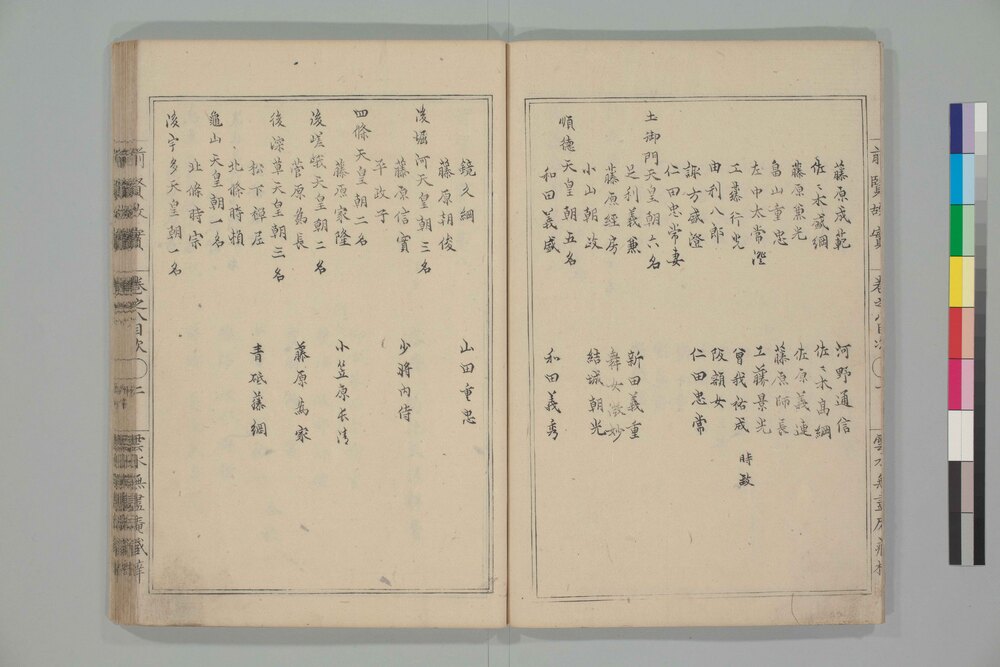 藤原成範　河野通信
佐々木盛綱　佐々木高綱
藤原兼光　佐原義連
畠山重忠　藤原師長
左中太常澄　工藤景光
工藤行光　曾我祐成　時致
由利八郎　阪額女
諏方盛澄　仁田忠常
仁田忠常妻
土御門天皇朝六名
足利義兼　新田義重
藤原経房　舞女微妙
小山朝政　結城朝光
順徳天皇朝五名
和田義盛　和田義秀
鏡久綱　山田重忠
藤原朝俊
後堀河天皇朝三名
藤原信實　少將内侍
平政子
四條天皇朝二名
藤原家隆　小笠原長清
後嵯峨天皇朝二名
菅原為長　藤原為家
後深草天皇朝三名
松下禅尼　青砥藤綱
北條時頼
龜山天皇朝一名
北條時宗
後宇多天皇朝一名
前賢故實　卷之八目次　二